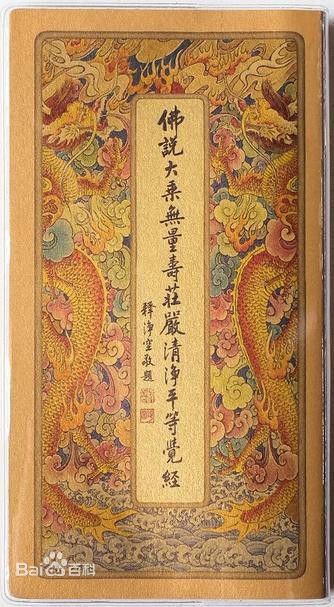 佛說大乘無量壽莊嚴清淨平等覺經
釋淨空敬題
Bai百科